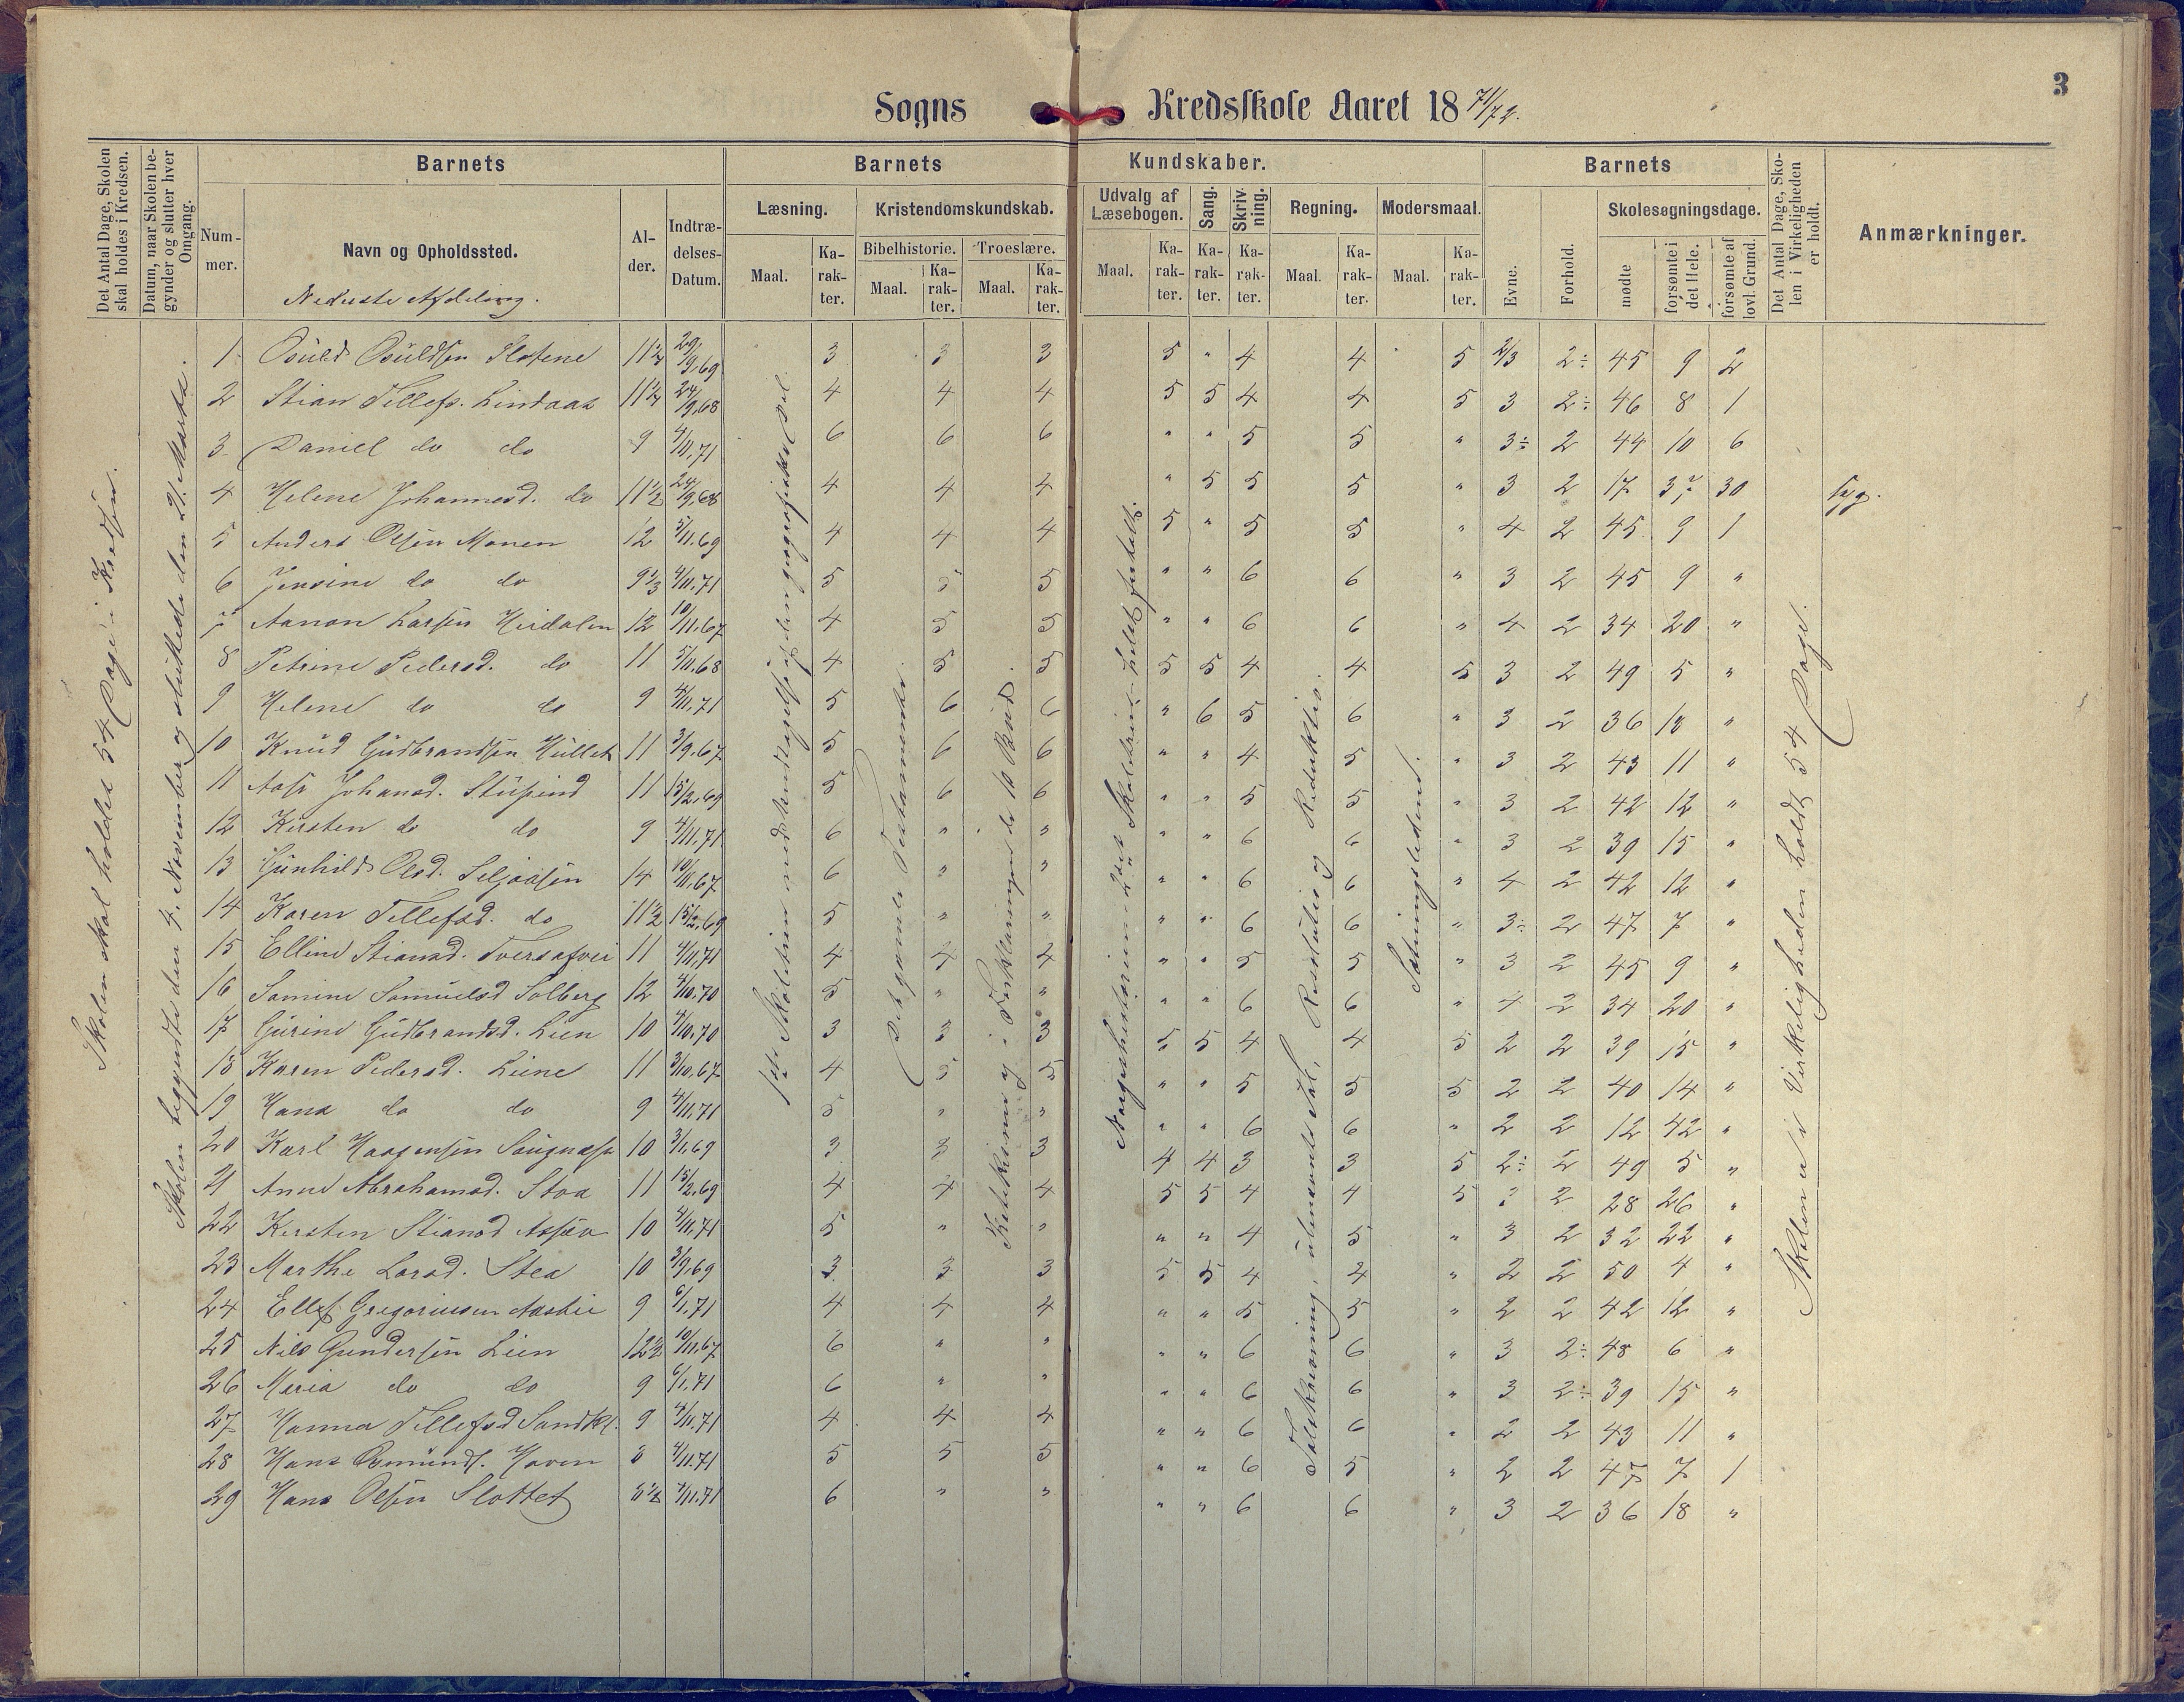 3
Sogns Kredsskole Aaret 18 71/72.
Det Antal Dage, Skolen skal holdes i Kredsen.
Datum, naar Skolen begynder og slutter hver Omgang.
Barnets
Barnets Kundskaber.
Barnets
Det Antal Dage, Skolen i Virkeligheden er holdt.
Anmærkninger.
Nummer.
Navn og Opholdssted.
Alder.
Indtrædelses-Datum.
Læsning.
Kristendomskundskab.
Udvalg af Læsebogen.
Sang.
Skrivning.
Regning.
Modersmaal.
Evne.
Forhold.
Skolesøgningsdage.
Maal.
Karakter.
Bibelhistorie.
Troeslære.
Maal.
Karakter.
Maal.
Karakter.
Maal.
Karakter.
Karakter.
Karakter.
Maal.
Karakter.
Maal.
Karakter.
mødte
forsømte i det Hele.
forsømte af lovl. Grund.
Nederste Afdeling.
Skolen skal holdes 54 Dage i Kredsen.
Skolen begyndte den 4. November og sluttede den 21. Marts.
1ste Skoletrin med Undtagelse af den geografiske Del.
Det gamle Testamente.
i Forklaringen
Norgeshistorien 2det Skoletrin helst fortalt.
Talskrivning, ubenævnte Tal, Resolutio og Reduktio.
Sætningsledene.
Skolen er i Virkeligheden holdt 54 Dage.
1 Osuld Osuldsen 11½ 29/9.69 3 3 3 5 " 4 4 5 2/3 2÷ 45 9 2
2 Stian Tellefs. Lindaas 11½ 24/9.68 4 4 4 5 5 4 4 5 3 2÷ 46 8 1
3 Daniel do do 9 4/11.71 6 6 6 " " 5 5 " 3÷ 2 44 10 6
4 Helene Johannesd. do 11½ 24/9.68 4 4 4 " 5 5 5 " 3 2 17 37 30 syg.
5 Anders Olsen Monen 12 5/11.69 4 4 4 5 " 5 5 " 4 2 45 9 1
6 Jensine do do 9⅓ 4/11.71 5 5 5 " " 6 6 " 3 2 45 9 "
7 Aanon Larsen Heidalen 12 10/11.67 4 5 5 " " 6 6 " 4 2 34 20 "
8 Petrine Pedersd. do 11 5/11.68 4 5 5 5 5 4 4 5 3 2 49 5 "
9 Helene do do 9 4/11.71 5 6 6 " 6 5 6 " 3 2 36 18 "
10 Knud Gudbrandsen Hullet 11 3/9.67 5 6 6 " " 4 5 " 3 2 43 11 "
11 Johansd. Stupend 11 15/2.69 5 6 6 " " 5 5 " 3 2 42 12 "
12 Kirsten do do 9 4/11.71 6 " " " " 6 6 " 3 2 39 15 "
13 Gunhild Olsd. Seljaasen 14 10/11.67 6 " " " " 6 6 " 4 2 42 12 "
14 Karen Tellefsd. do 11½ 15/2.69 5 " " " " 6 6 " 3÷ 2 47 7 "
15 Elline Stiansd. 11 4/11.71 4 4 4 " " 5 5 " 3 2 45 9 "
16 Samine Samuelsd Solberg 12 4/10.70 5 " " " " 6 6 " 4 2 34 20 "
17 Gurine Gudbrandsd. Lien 10 4/10.70 3 3 3 5 5 4 4 5 2 2 39 15 "
18 Karen Pedersd. Liene 11 3/10.67 4 5 5 " " 5 5 5 2 2 40 14 "
19 Hans do do 9 4/11.71 5 " " " " 6 6 " 2 2 12 42 "
20 Karl Haagensen 10 3/1.69 3 3 3 4 4 3 3 5 2÷ 2 49 5 "
21 Anne Abrahamsd. Stoa 11 15/2.69 4 4 4 5 5 4 4 5 2 28 26 "
22 Kirsten Stiansd 10 4/11.71 5 " " " " 4 5 " 3 2 32 22 "
23 Marthe Larsd. Stea 10 3/9.69 3 3 3 5 5 4 4 " 2 2 50 4 "
24 Ellef Gregoriusen 9 6/1.71 4 4 4 " " 5 5 " 2 2 42 12 "
25 Nils Gundersen Lien 12½ 10/11.67 6 " " " " 6 6 " 3 2÷ 48 6 "
26 Maria do do 9 6/1.71 6 " " " " 6 6 " 3 2÷ 39 15 "
27 Hanna Tellefsd 9 4/11.71 4 4 4 " " 6 6 " 2 2 43 11 "
28 Hans Osmunds. Haven 8 4/11.71 5 5 5 " " 6 5 " 2 2 47 7 1
29 Hans Olsen Slottet 8½ 4/11.71 6 " " " " 6 6 " 3 2 36 18 "